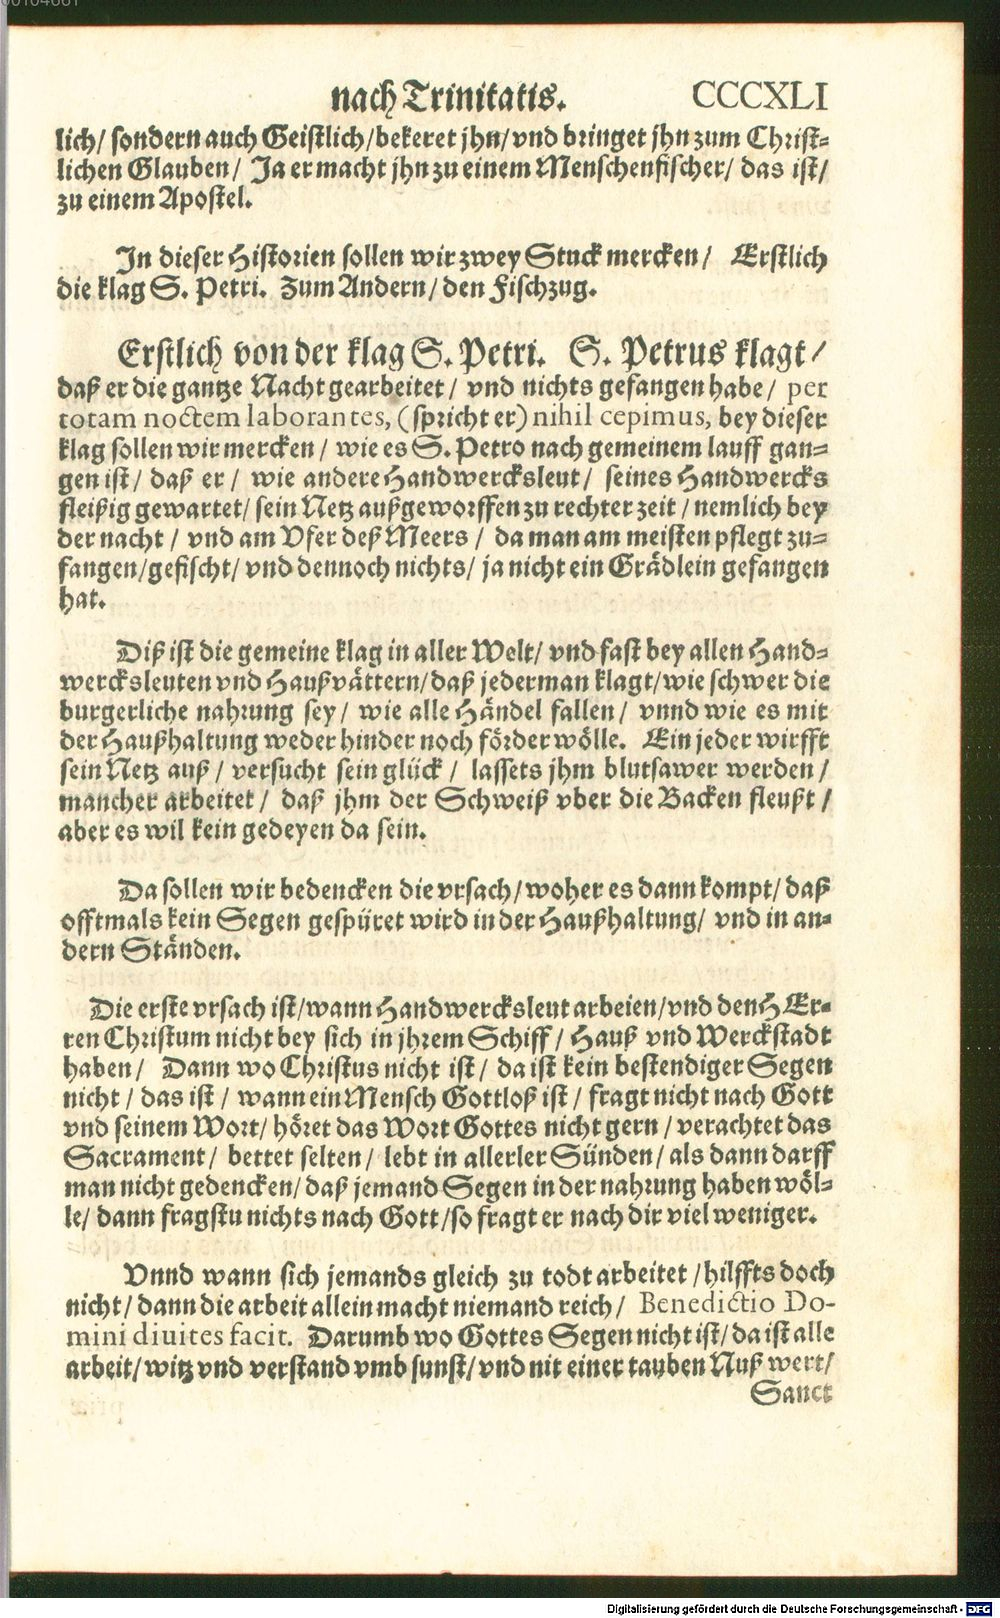 nach Trinitatis. CCCXLI
lich/ sondern auch Geistlich/bekeret jhn/vnd bringet jhn zum Christ-
lichen Glauben/ Ja er macht jhn zu einem Menschenfischer/ das ist/
zu einem Apostel.
In dieser Historien sollen wir zwey Stuck mercken/ Erstlich
die klag S. Petri. Zum Andern/ den Fischzug.
Erstlich von der klag S. Petri. S. Petrus klagt/
daß er die gantze Nacht gearbeitet/ vnd nichts gefangen habe/ per
totam noctem laborantes, (spricht er) nihil cepimus, bey dieser
klag sollen wir mercken/ wie es S. Petro nach gemeinem lauff gan-
gen ist/ daß er/ wie andere Handwercksleut/ seines Handwercks
fleißig gewartet/ sein Netz außgeworffen zu rechter zeit/ nemlich bey
der nacht/ vnd am Vfer deß Meers/ da man am meisten pflegt zu-
fangen/gefischt/ vnd dennoch nichts/ ja nicht ein Grädlein gefangen
hat.
Diß ist die gemeine klag in aller Welt/ vnd fast bey allen Hand-
wercksleuten vnd Haußvättern/daß jederman klagt/wie schwer die
burgerliche nahrung sey/ wie alle Händel fallen/ vnnd wie es mit
der Haußhaltung weder hinder noch förder wölle. Ein jeder wirfft
sein Netz auß/ versucht sein glück/ lassets jhm blutsawer werden/
mancher arbeitet/ daß jhm der Schweiß vber die Backen fleußt/
aber es wil kein gedeyen da sein.
Da sollen wir bedencken die vrsach/woher es dann kompt/ daß
offtmals kein Segen gespüret wird in der Haußhaltung/ vnd in an-
dern Ständen.
Die erste vrsach ist/wann Handwercksleut arbeien/vnd den HEr-
ren Christum nicht bey sich in jhrem Schiff/ Hauß vnd Werckstadt
haben/ Dann wo Christus nicht ist/ da ist kein bestendiger Segen
nicht/ das ist/ wann ein Mensch Gottloß ist/ fragt nicht nach Gott
vnd seinem Wort/ höret das Wort Gottes nicht gern/ verachtet das
Sacrament/ bettet selten/ lebt in allerler Sünden/ als dann darff
man nicht gedencken/ daß jemand Segen in der nahrung haben wöl-
le/ dann fragstu nichts nach Gott/so fragt er nach dir viel weniger.
Vnnd wann sich jemands gleich zu todt arbeitet/hilffts doch
nicht/ dann die arbeit allein macht niemand reich/ Benedictio Do-
mini diuites facit. Darumb wo Gottes Segen nicht ist/ da ist alle
arbeit/witz vnd verstand vmb sunst/vnd nit einer tauben Nuß wert/
Sanct
Digitalisierung gefördert durch die Deutsche Forschungsgemeinschaft - DFG